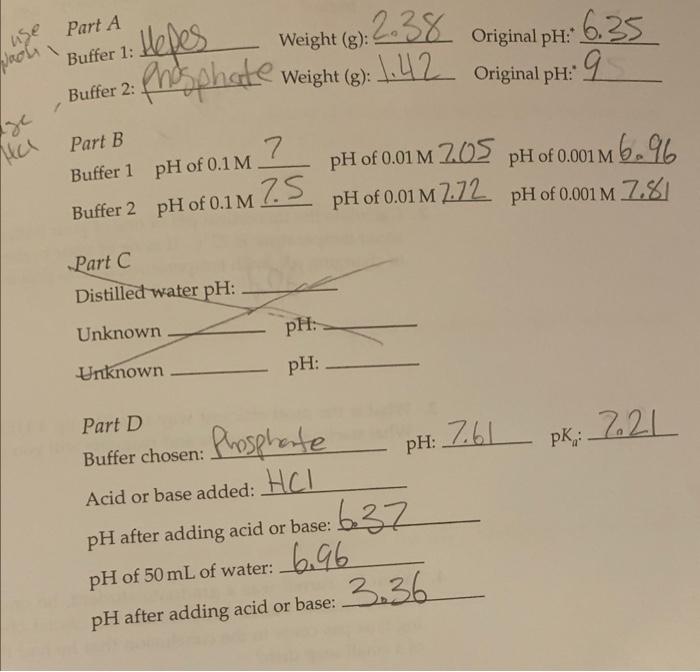 use
Part A
Buffer 1: Hepes Weight (g): 2.38 Original pH:* 6.35
Buffer 2: Phosphate Weight (g): 1.42 Original pH:* 9
HCl
Part B
Buffer 1 pH of 0.1 M 7 pH of 0.01 M 7.05 pH of 0.001 M 6.96
Buffer 2 pH of 0.1 M 7.5 pH of 0.01 M 7.72 pH of 0.001 M 7.81
Part C
Distilled water pH:
Unknown pH:
Unknown pH:
Part D
Buffer chosen: Phosphate pH: 7.61 pKa: 7.21
Acid or base added: HCl
pH after adding acid or base: 6.37
pH of 50 mL of water: 6.96
pH after adding acid or base: 3.36